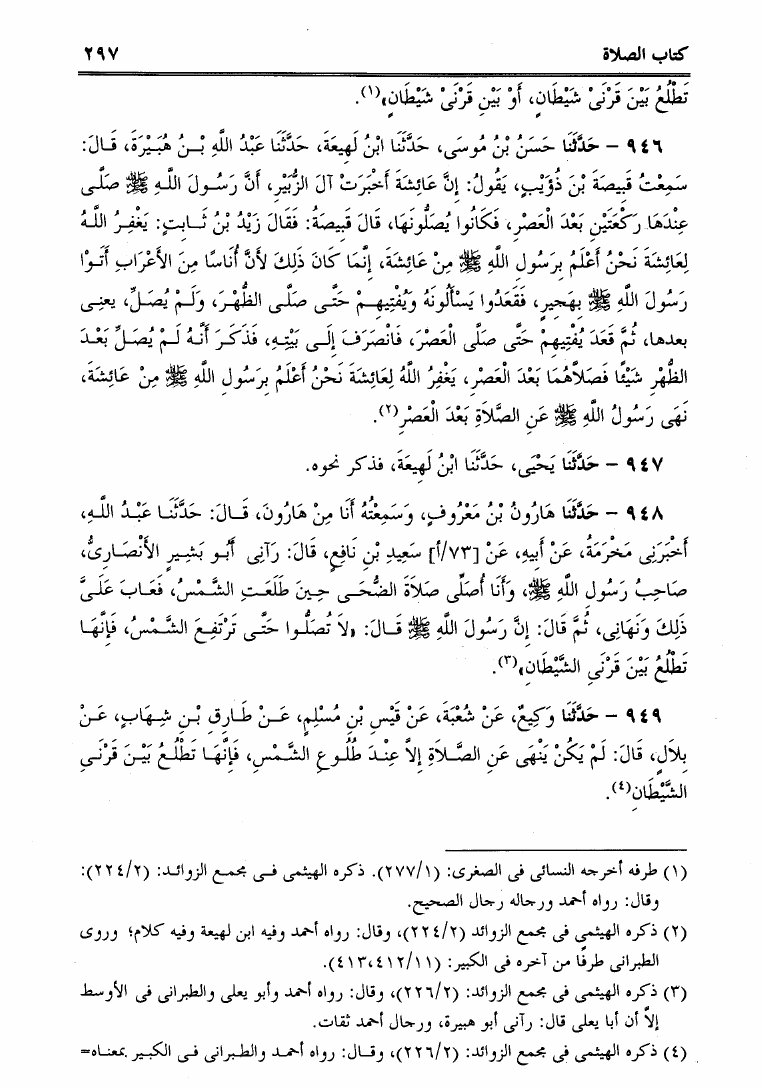 كتاب الصلاة ٢٩٧
تَطْلُعُ بَيْنَ قَرْنَىْ شَيْطَانٍ، أَوْ بَيْنِ قَرْنَىْ شَيْطَانٍ»(١).
٩٤٦ – حَدَّثَنَا حَسَنُ بْنُ مُوسَى، حَدَّثَنَا ابْنُ لَهِيعَةَ، حَدَّثَنَا عَبْدُ اللَّهِ بْنُ هُبَيْرَةَ، قَالَ:
سَمِعْتُ قَبِيصَةَ بْنَ ذُؤَيْبٍ، يَقُولُ: إِنَّ عَائِشَةَ أَخْبَرَتْ آلَ الزُّبَيْرِ، أَنَّ رَسُولَ اللَّهِ ﷺ صَلَّى
عِنْدَهَا رَكْعَتَيْنِ بَعْدَ الْعَصْرِ، فَكَانُوا يُصَلُّونَهَا، قَالَ قَبِيصَةُ: فَقَالَ زَيْدُ بْنُ ثَابِتٍ: يَغْفِرُ اللَّهُ
لِعَائِشَةَ نَحْنُ أَعْلَمُ بِرَسُولِ اللَّهِ ﷺ مِنْ عَائِشَةَ، إِنَّمَا كَانَ ذَلِكَ لأَنَّ أُنَاسًا مِنَ الأَعْرَابِ أَتَوْا
رَسُولَ اللَّهِ ﷺ بِهَجِيرٍ، فَقَعَدُوا يَسْأَلُونَهُ وَيُفْتِيهِمْ حَتَّى صَلَّى الظُّهْرَ، وَلَمْ يُصَلِّ، يعنِى
بعدها، ثُمَّ قَعَدَ يُفْتِيهِمْ حَتَّى صَلَّى الْعَصْرَ، فَانْصَرَفَ إِلَى بَيْتِهِ، فَذَكَرَ أَنَّهُ لَمْ يُصَلِّ بَعْدَ
الظُّهْرِ شَيْئًا فَصَلاَّهُمَا بَعْدَ الْعَصْرِ، يَغْفِرُ اللَّهُ لِعَائِشَةَ نَحْنُ أَعْلَمُ بِرَسُولِ اللَّهِ ﷺ مِنْ عَائِشَةَ،
نَهَى رَسُولُ اللَّهِ ﷺ عَنِ الصَّلاَةِ بَعْدَ الْعَصْرِ(٢).
٩٤٧ – حَدَّثَنَا يَحْيَى، حَدَّثَنَا ابْنُ لَهِيعَةَ، فذكر نحوه.
٩٤٨ – حَدَّثَنَا هَارُونُ بْنُ مَعْرُوفٍ، وَسَمِعْتُهُ أَنَا مِنْ هَارُونَ، قَالَ: حَدَّثَنَا عَبْدُ اللَّهِ،
أَخْبَرَنِى مَخْرَمَةُ، عَنْ أَبِيهِ، عَنْ [٧٣/أ] سَعِيدِ بْنِ نَافِعٍ، قَالَ: رَآنِى أَبُو بَشِيرٍ الأَنْصَارِىُّ،
صَاحِبُ رَسُولِ اللَّهِ ﷺ، وَأَنَا أُصَلِّى صَلاَةَ الضُّحَى حِينَ طَلَعَتِ الشَّمْسُ، فَعَابَ عَلَىَّ
ذَلِكَ وَنَهَانِى، ثُمَّ قَالَ: إِنَّ رَسُولَ اللَّهِ ﷺ قَالَ: «لاَ تُصَلُّوا حَتَّى تَرْتَفِعَ الشَّمْسُ، فَإِنَّهَا
تَطْلُعُ بَيْنَ قَرْنَىِ الشَّيْطَانِ»(٣).
٩٤٩ – حَدَّثَنَا وَكِيعٌ، عَنْ شُعْبَةَ، عَنْ قَيْسِ بْنِ مُسْلِمٍ، عَنْ طَارِقِ بْنِ شِهَابٍ، عَنْ
بِلاَلٍ، قَالَ: لَمْ يَكُنْ يَنْهَى عَنِ الصَّلاَةِ إِلاَّ عِنْدَ طُلُوعِ الشَّمْسِ، فَإِنَّهَا تَطْلُعُ بَيْنَ قَرْنَىِ
الشَّيْطَانِ(٤).
(١) طرفه أخرجه النسائى فى الصغرى: (٢٧٧/١). ذكره الهيثمى فى مجمع الزوائد: (٢٢٤/٢):
وقال: رواه أحمد ورجاله رجال الصحيح.
(٢) ذكره الهيثمى فى مجمع الزوائد (٢٢٤/٢)، وقال: رواه أحمد وفيه ابن لهيعة وفيه كلام؛ وروى
الطبرانى طرفًا من آخره فى الكبير: (٤١٣،٤١٢/١١).
(٣) ذكره الهيثمى فى مجمع الزوائد: (٢٢٦/٢)، وقال: رواه أحمد وأبو يعلى والطبرانى فى الأوسط
إلاَّ أن أبا يعلى قال: رآنى أبو هبيرة، ورجال أحمد ثقات.
(٤) ذكره الهيثمى فى مجمع الزوائد: (٢٢٦/٢)، وقال: رواه أحمد والطبرانى فى الكبير بمعناه=